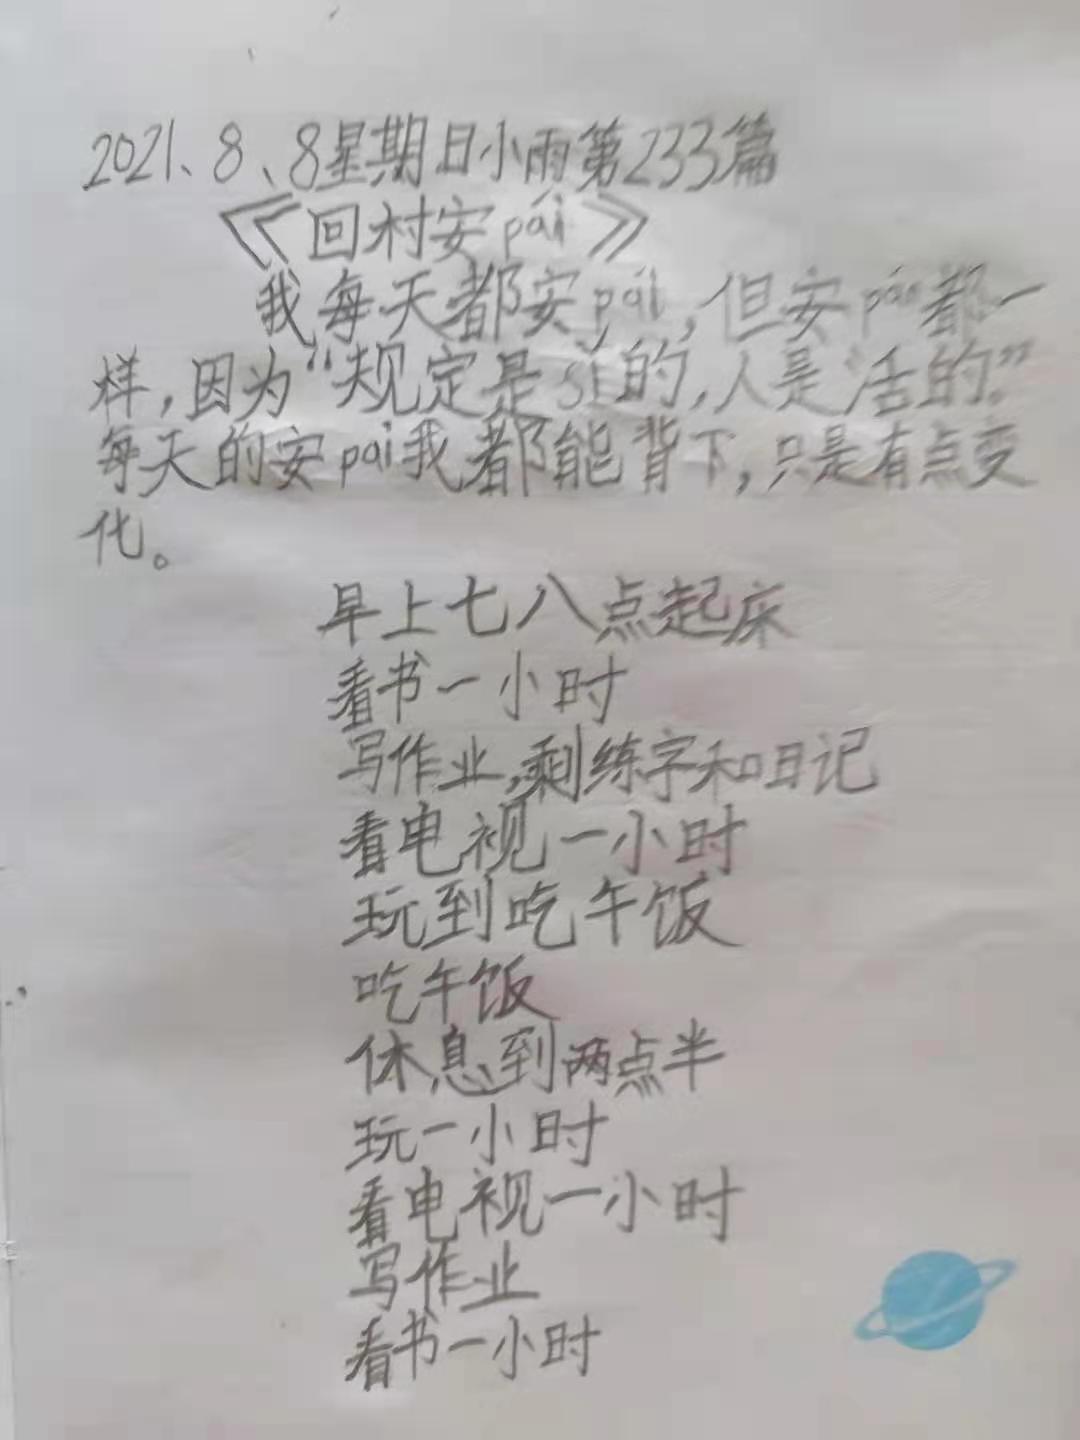 2021、8、8星期日小雨第233篇
《回村安pái》
我每天都安pái，但安pái都一
样，因为“规定是sǐ的，人是活的。”
每天的安pái我都能背下，只是有点变
化。
早上七八点起床
看书一小时
写作业，剩练字和日记
看电视一小时
玩到吃午饭
吃午饭
休息到两点半
玩一小时
看电视一小时
写作业
看书一小时